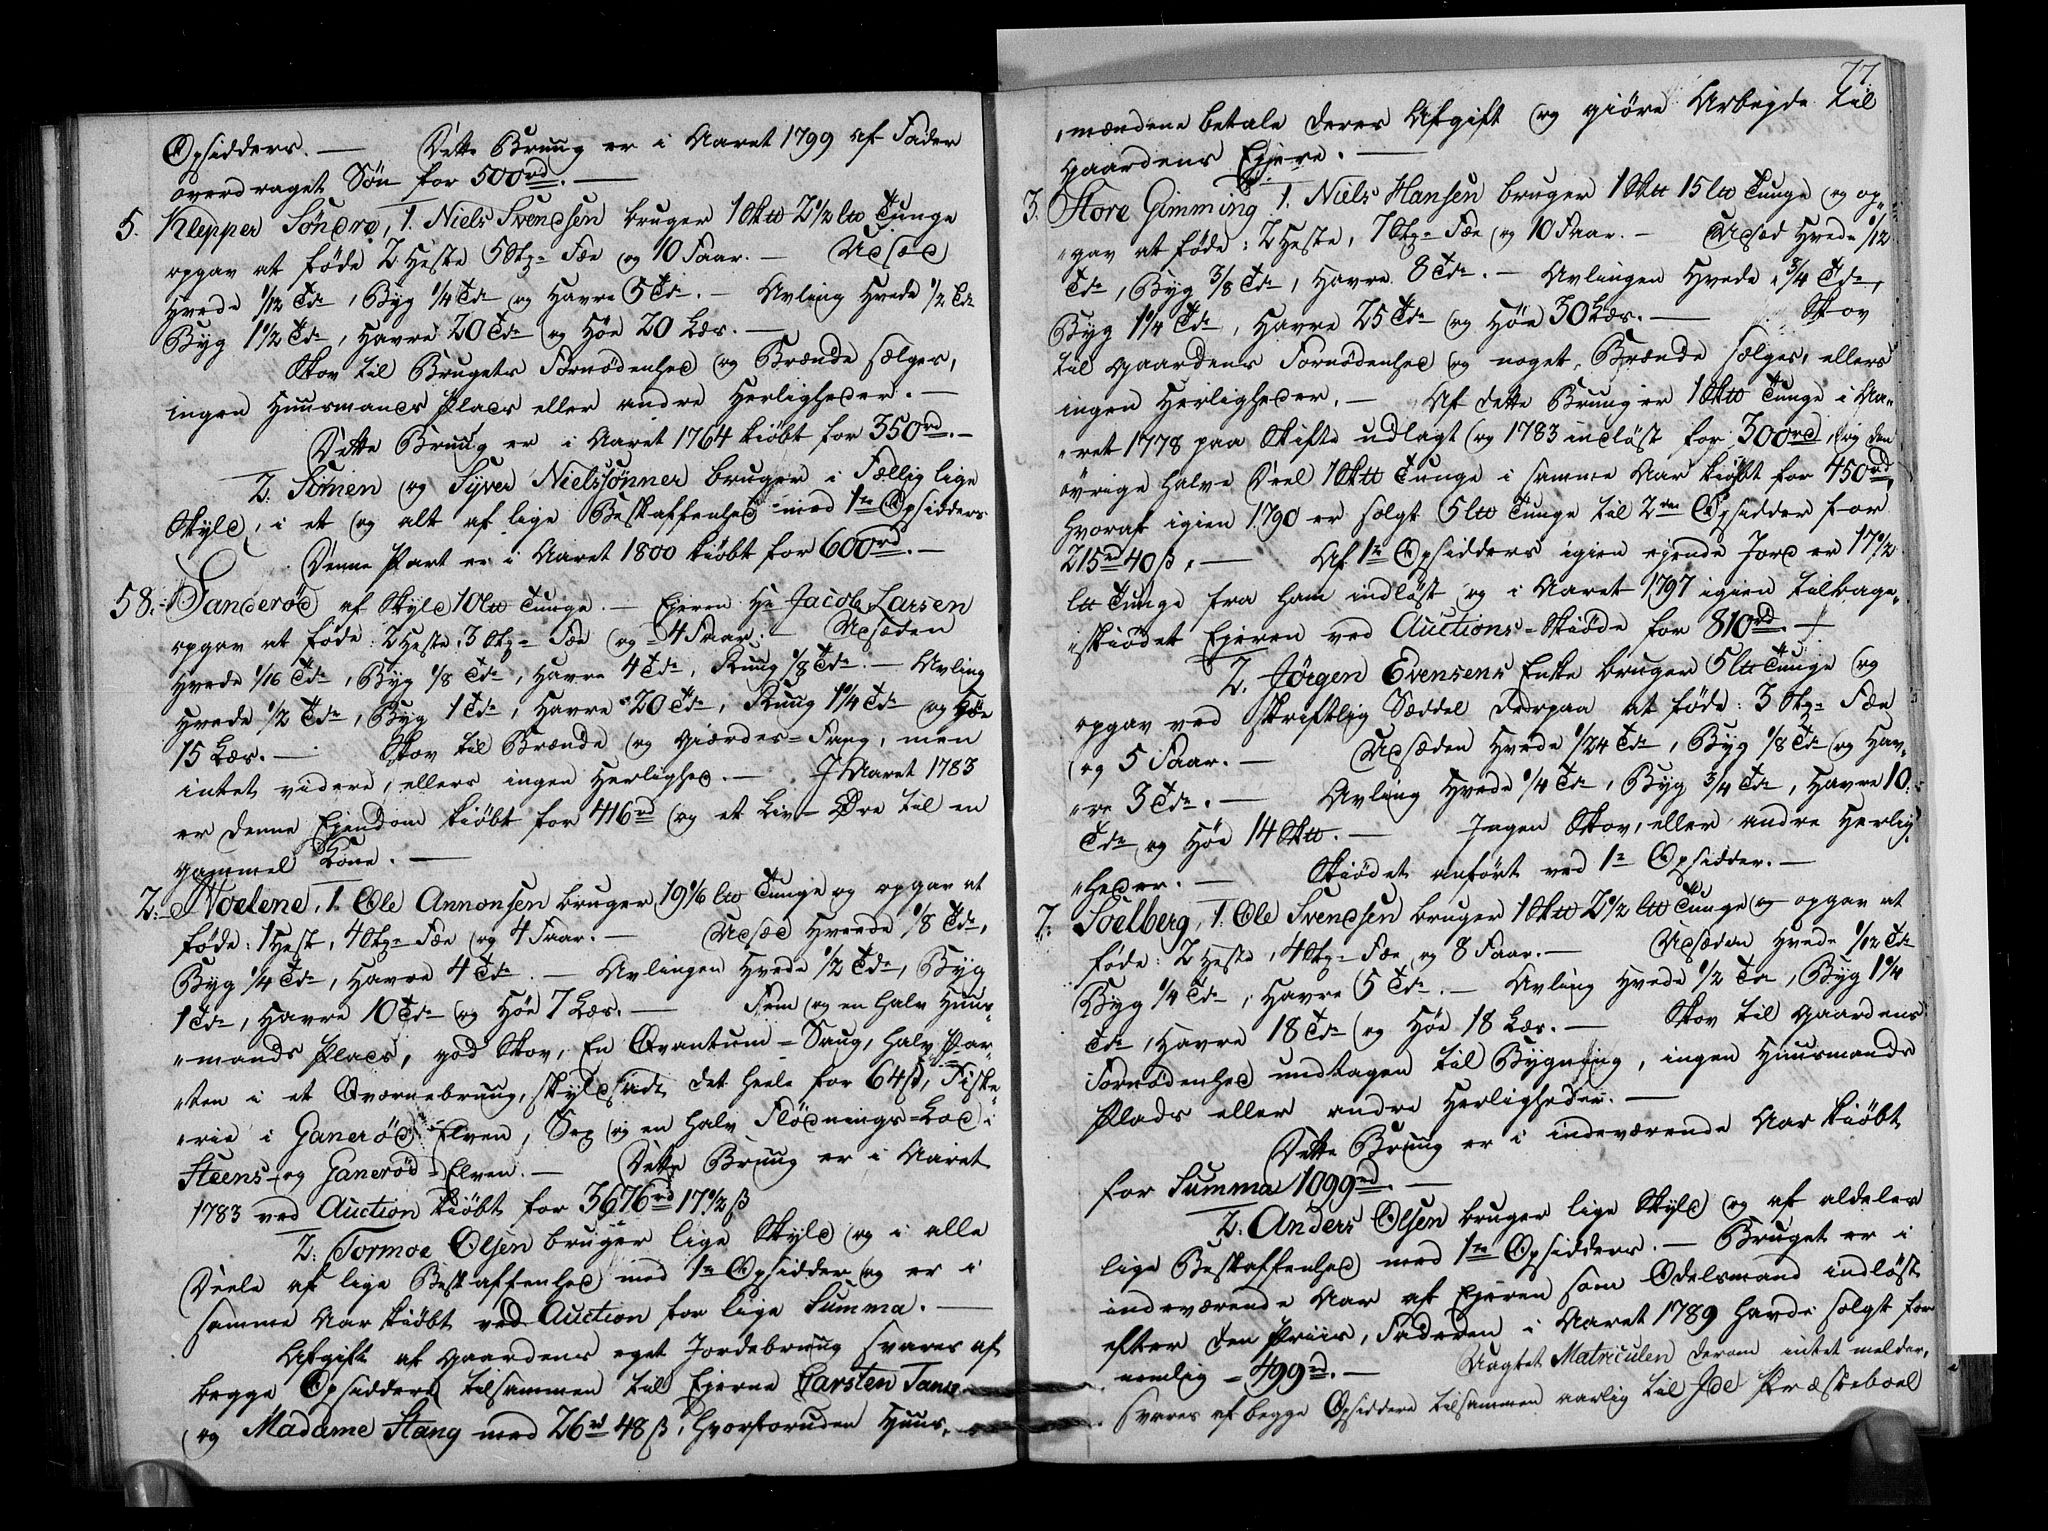 Opsidders. — Dette Bruug er i Aaret 1799 af Fader
overdraget Søn for 500rd. —
5. Klepper Søndre, 1. Niels Svendsen bruger 1 Sk℔ 2½ L℔ Tunge
opgav at føde 2 Heste 5 Stz= Fæe og 10 Faar. — Udsæd
Hvede 1/12 Tde, Byg ¼ Tde og Havre 5 Td. — Avling Hvede ½ Td
Byg 1½ Tde, Havre 20 Tde og Høe 20 Læs. —
Skov til Brugets Fornødenhed og Brænde sælges,
ingen Huusmands Plads eller andre Herligheder. —
Dette Bruug er i Aaret 1764 kiøbt for 350rd. —
2. Simen og Syver Nielssønner bruger i Fællig lige
Skyld, i et og alt af lige Beskaffenhed med 1te Opsidders
Denne Part er i Aaret 1800 kiøbt for 600rd. —
58. Sanderød af Skyld 10 L℔ Tunge. — Ejeren Hr Jacob Larsen
opgav at føde: 2 Heste, 3 Stz= Fæe og 4 Faar. — Udsæden
Hvede 1/16 Tde, Byg 1/8 Tde, Havre 4 Tde, Ruug 1/8 Tde. — Avling
Hvede ½ Tde, Byg 1 Tde, Havre 20 Tde, Ruug 1¼ Tde og Høe
15 Læs. — Skov til Brænde og Giærdes=Fang, men
intet videre, ellers ingen Herlighed. — I Aaret 1783
er denne Ejendom kiøbt for 416rd og et Liv=Øre til en
gammel Kone. —
2. Noelene, 1. Ole Annonsen bruger 19 1/6 L℔ Tunge og opgav at
føde: 1 Hest, 4 Stz= Fæe og 4 Faar. — Udsæd Hvede 1/8 Tde,
Byg ¼ Tde, Havre 4 Tde. — Avlingen Hvede ½ Tde, Byg
1 Tde, Havre 10 Tde og Høe 7 Læs. — Fem og en halv Huus-
"mands Plads, god Skov, En Qvantum=Saug, halv Par-
"ten i et Qværnebruug, skyldsadt det heele for 64 ß, Fiske-
"rie i Ganerød Elven, Sex og en halv Flødnings=Lod i
Steens- og Ganerød=Elven. — Dette Bruug er i Aaret
1783 ved Auction kiøbt for 3676rd 17½ ß
2. Tormoe Olsen bruger lige Skyld og i alle
Deele af lige Beskaffenhed med 1te Opsidder og er i
samme Aar kiøbt ved Auction for lige Summa. —
Afgift af Gaardens eget Jordebruug svares af
begge Opsiddere tilsammen til Ejerne Carsten Tank
og Madame Stang med 26rd 48 ß, hvorforuden Huus-
77.
"mændene betale deres Afgift og giøre Arbejde til
Gaardens Ejere. —
3. Store Gimming 1. Niels Hansen bruger 1 Sk℔ 15 L℔ Tunge og op-
"gav at føde: 2 Heste, 7 Stz= Fæe og 10 Faar. — Udsæd Hvede 1/12
Tde, Byg 3/8 Tde, Havre 8 Tde. — Avlingen Hvede ¾ Tde,
Byg 1¼ Tde, Havre 25 Tde og Høe 30 Læs. — Skov
til Gaardens Fornødenhed og noget Brænde sælges, ellers
ingen Herligheder. — Af dette Bruug er 1 Sk℔ Tunge i Aa-
"ret 1778 paa Skifte udlagt og 1783 indløst for 300rd, og den
øvrige halve Deel 1 Sk℔ Tunge i samme Aar kiøbt for 450rd,
hvoraf igien 1790 er solgt 5 L℔ Tunge til 2den Opsidder for
215rd 40 ß. — Af 1te Opsidders igien ejende Jord er 17½
L℔ Tunge fra ham indløst og i Aaret 1797 igien tilbage-
"skiødet Ejeren ved Auctions=Skiøde for 810rd. —
2. Jørgen Evensens Enke bruger 5 L℔ Tunge og
opgav ved skriftlig Sæddel derpaa at føde: 3 Stz= Fæe
og 5 Faar. — Udsæden Hvede 1/24 Tde, Byg 1/8 Tde og Hav-
"re 3 Tde. — Avling Hvede ¼ Tde, Byg ¾ Tde, Havre 10
Tde og Høe 14 Sk℔. — Ingen Skov, eller andre Herlig-
"heder. — Skiødet anført ved 1te Opsidder. —
7. Soelberg, 1. Ole Svendsen bruger 1 Sk℔ 2½ L℔ Tunge og opgav at
føde: 2 Heste, 4 Stz= Fæe og 8 Faar. — Udsæden Hvede 1/12 Tde
Byg ¼ Tde, Havre 5 Tde. — Avling Hvede ½ Td, Byg 1¼
Tde, Havre 18 Tde og Høe 18 Læs. — Skov til Gaardens
Fornødenhed undtagen til Bygning, ingen Huusmands
Plads eller andre Herligheder. —
Dette Bruug er i indeværende Aar kiøbt
for Summa 1099rd. —
2. Anders Olsen bruger lige Skyld og af aldeles
lige Beskaffenhed med 1te Opsidders. — Bruget er i
indeværende Aar af Ejeren som Odelsmand indløst
efter den Priis, Faderen i Aaret 1789 havde solgt for
nemlig 499rd. — Uagtet Matriculen derom intet melder,
svares af begge Opsiddere tilsammen aarlig til Ide Præsteboel